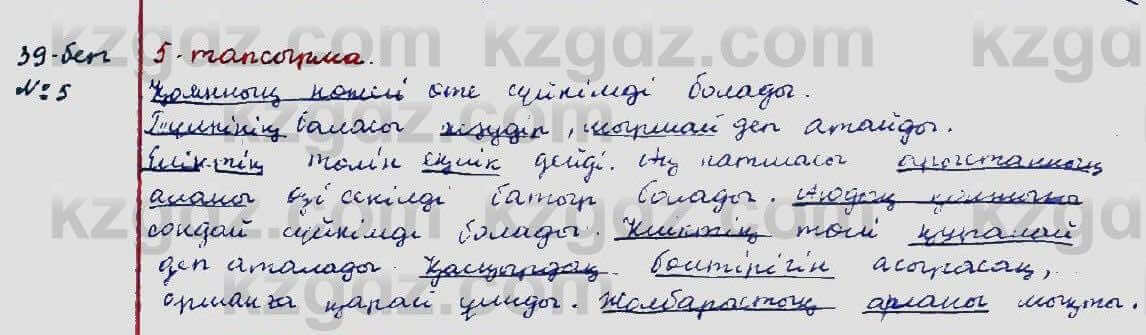 39-бет 5-тапсырма.
№5 Қоянның көжегі өте сүйкімді болады.
Түлкінің баласы жәудір, мыршай деп атайды.
Еліктің төлін еңлік дейді. Аң патшасы арыстанның
апаны өзі секілді батыр болады. Аюдың қонжығы
сондай сүйкімді болады. Киіктің төлі құралай
деп аталады. Қасқырдың бөлтірігін асырасаң,
орманға қарай ұлиды. Жолбарыстың арланы мықты.
kzgdz.com kzgdz.com